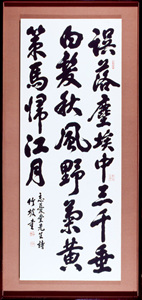 誤落塵埃中三千垂
白髮秋風野菊黃
策馬歸江月
竹坡書